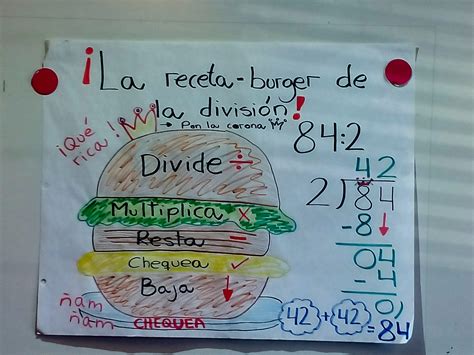 ¡La receta-burger de
la división!
→ Pon la corona
¡Qué
rica!
Divide ÷
Multiplica x
Resta –
Chequea ✓
Baja ↓
ñam
ñam
CHEQUEA
84:2
42
2)84
-8↓
04
-4
0
42 + 42 = 84